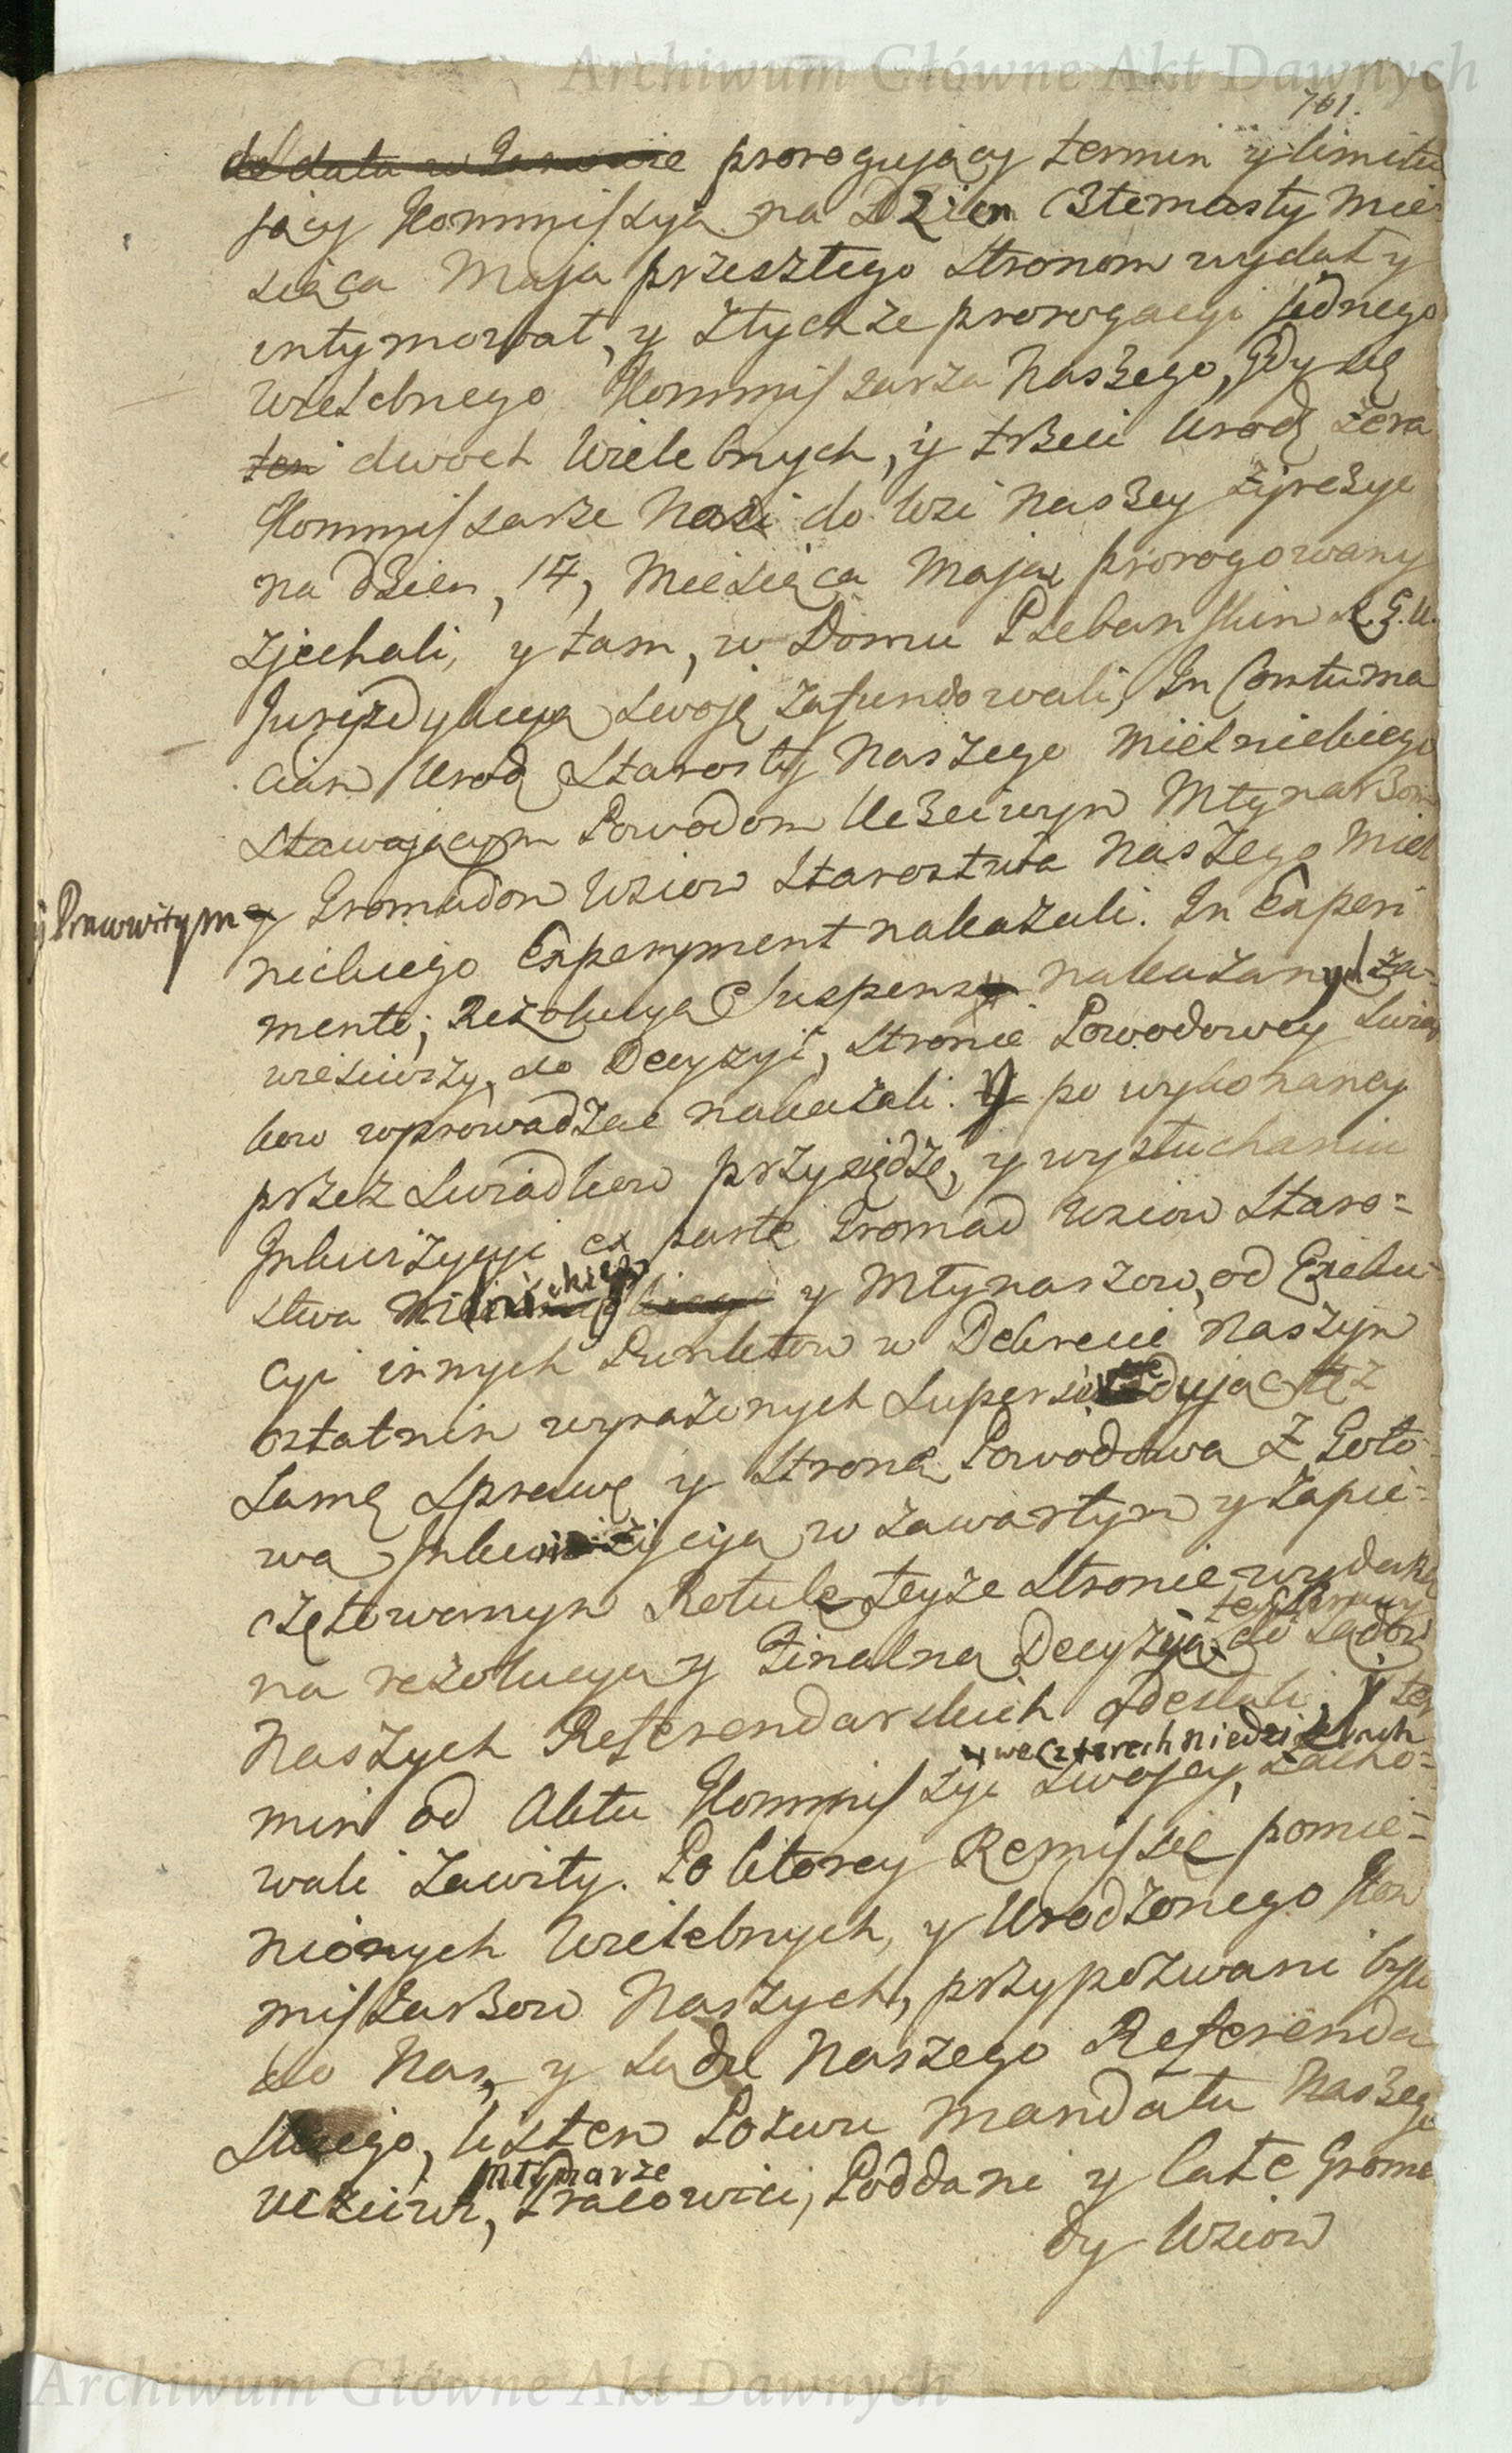 Archiwum Główne Akt Dawnych
701.
prorogujący termin y limitu
jący Kommissyą na Dzien Czternasty Mie
siąca Maja przeszłego Stronom wydał y
intymował, y ztychże prorogacyi jednego
Wielebnego Kommissarza Naszego, gdy się
ten dwoch Wielebnych, y trzeci Urodz
Kommissarze Nasi do Wsi Naszey
na dzien, 14, Miesiąca Maja prorogowany
Zjechali, y tam, w Domu Plebanskim
Juryzdykcyą Swoję zafundowali, In Contuma
ciam Urod Starosty Naszego Mielnickiego
Stawającym Powodom Uczciwym Młynarzom
y Prawowitym y Gromadom Wsiow Starostwa Naszego Miel
nickiego Experyment nakazali. In Experi
mento; Rezolucyą Suspensy nakazanych za-
wiesiwszy, do Decyzyi, Stronie Powodowey Swiad
kow wprowadzac nakazali. Y po wykonaney
przez Swiadkow przysiędze, y wysłuchaniu
Inkwizycyi ex parte Gromad Wsiow Staro-
stwa Mielnickiego y Młynaszow, od Exeku-
cyi innych Punktow w Dekrecie Naszym
ostatnim wyrażonych Supersedując też
Samę Sprawę y Strona Powodowa z Goto-
wą Inkwizycyą w zawartym y zapie-
czętowanym Rotule teyże Stronie wydaną
na rezolucyą y Finalną Decyzyą tey Sprawy do Sądow
Naszych Referendarskich odesłali, y ter
min od Aktu Kommissyi Swojey, we czterech niedzielach zacho-
wali Zawity. Po ktorey Remissie pomie-
nionych Wielebnych, y Urodzonego Kom
missarzow Naszych, przypozwani byli
do Nas, y Sądu Naszego Referenda
Skiego, ktztem Pozwu Mandatu Naszego
Uczciwi, Młynarze Pracowici, Poddani y Całe Groma
dy Wsiow
Archiwum Główne Akt Dawnych